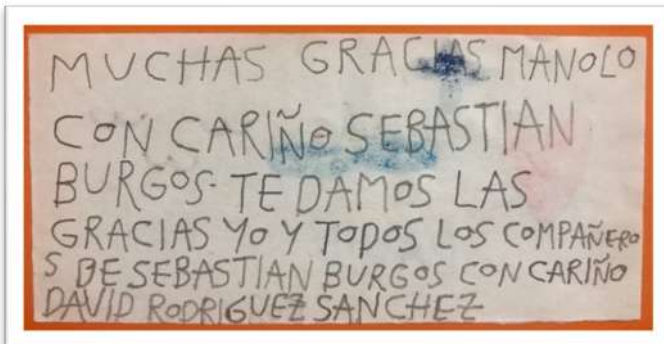 MUCHAS GRACIAS MANOLO
CON CARIÑO SEBASTIAN
BURGOS. TE DAMOS LAS
GRACIAS YO Y TODOS LOS COMPAÑERO
S DE SEBASTIAN BURGOS CON CARIÑO
DAVID RODRIGUEZ SANCHEZ